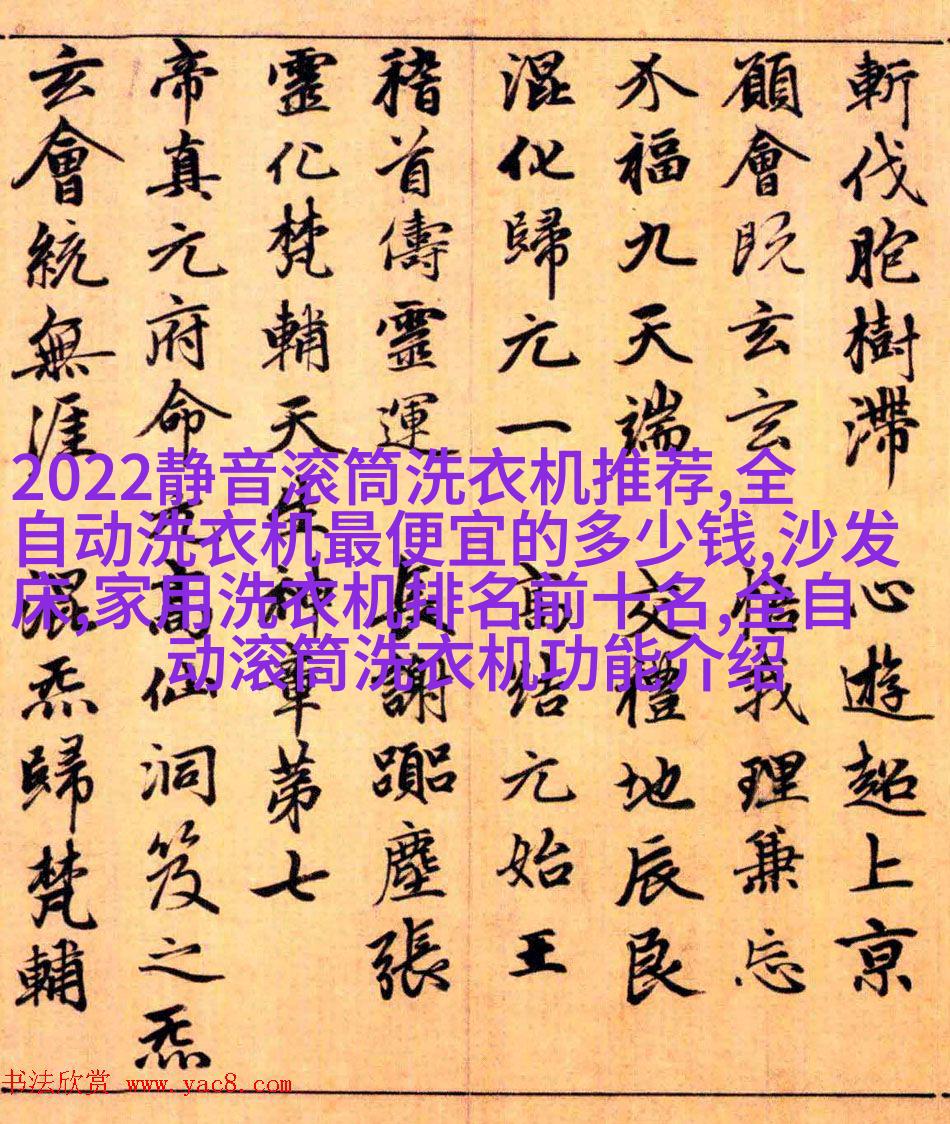 斬伐胞樹滯心遊超上亰
願會既玄玄悟我理兼忘
介福九天端交禮地辰良
混化歸元一高結元始王
稽首儔靈運長謝塵張
靈化梵輔天生神章第七
帝真元府命高仙洞笈之炁
玄會統無涯混炁歸梵輔
2022静音滚筒洗衣机推荐,全
自动洗衣机最便宜的多少钱,沙发
床,家用洗衣机排名前十名,全自
动滚筒洗衣机功能介绍
书法欣赏 www.yac8.com